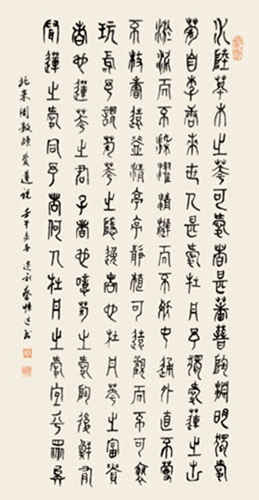 水陸草木之花可愛者甚蕃晉陶淵明獨愛
菊自李唐來世人甚愛牡丹予獨愛蓮之出
淤泥而不染濯清漣而不妖中通外直不蔓
不枝香遠益清亭亭靜植可遠觀而不可褻
玩焉予謂菊花之隱逸者也牡丹花之富貴
者也蓮花之君子者也噫菊之愛陶後鮮有
聞蓮之愛同予者何人牡丹之愛宜乎眾矣
北宋周敦頤愛蓮說壬午